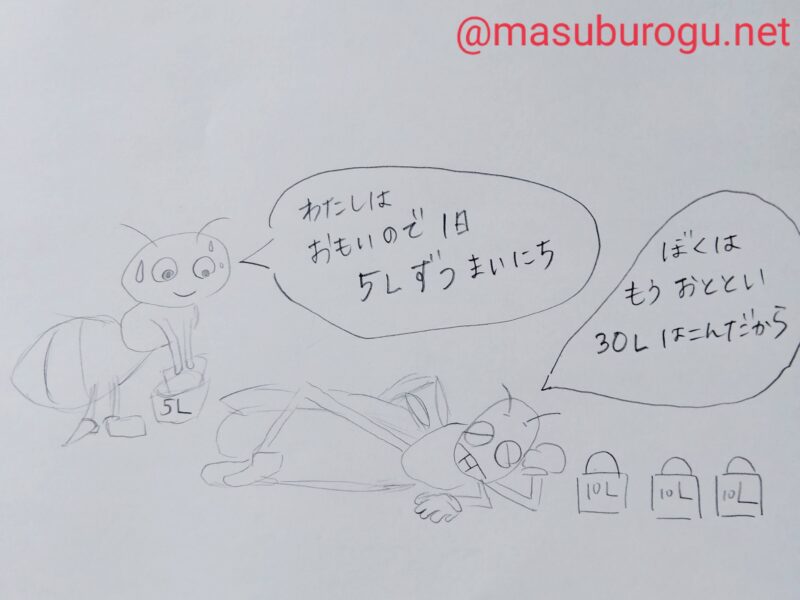 @masuburogu.net
わたしは
おもいので 1日
5Lずつ まいにち
ぼくは
もう おととい
30L はこんだから
5L
10L
10L
10L